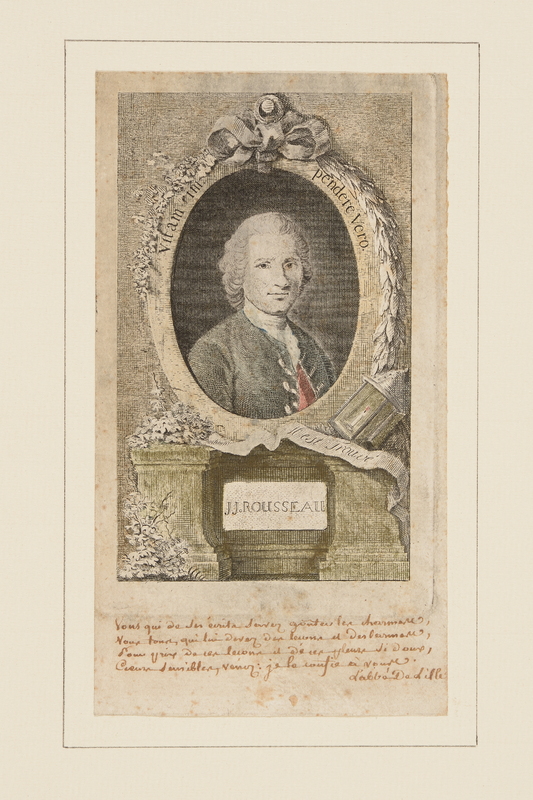 Vitam im
pendere Vero.
Il est Trouvé
J.J. ROUSSEAU
Vous qui de ses écrits savez goûter les charmes,
Vous tous, qui lui devez des leçons et des larmes,
Pour prix de ces leçons et de ces pleurs si doux,
Cœurs sensibles, venez: je le confie à vous.
L'abbé De Lille